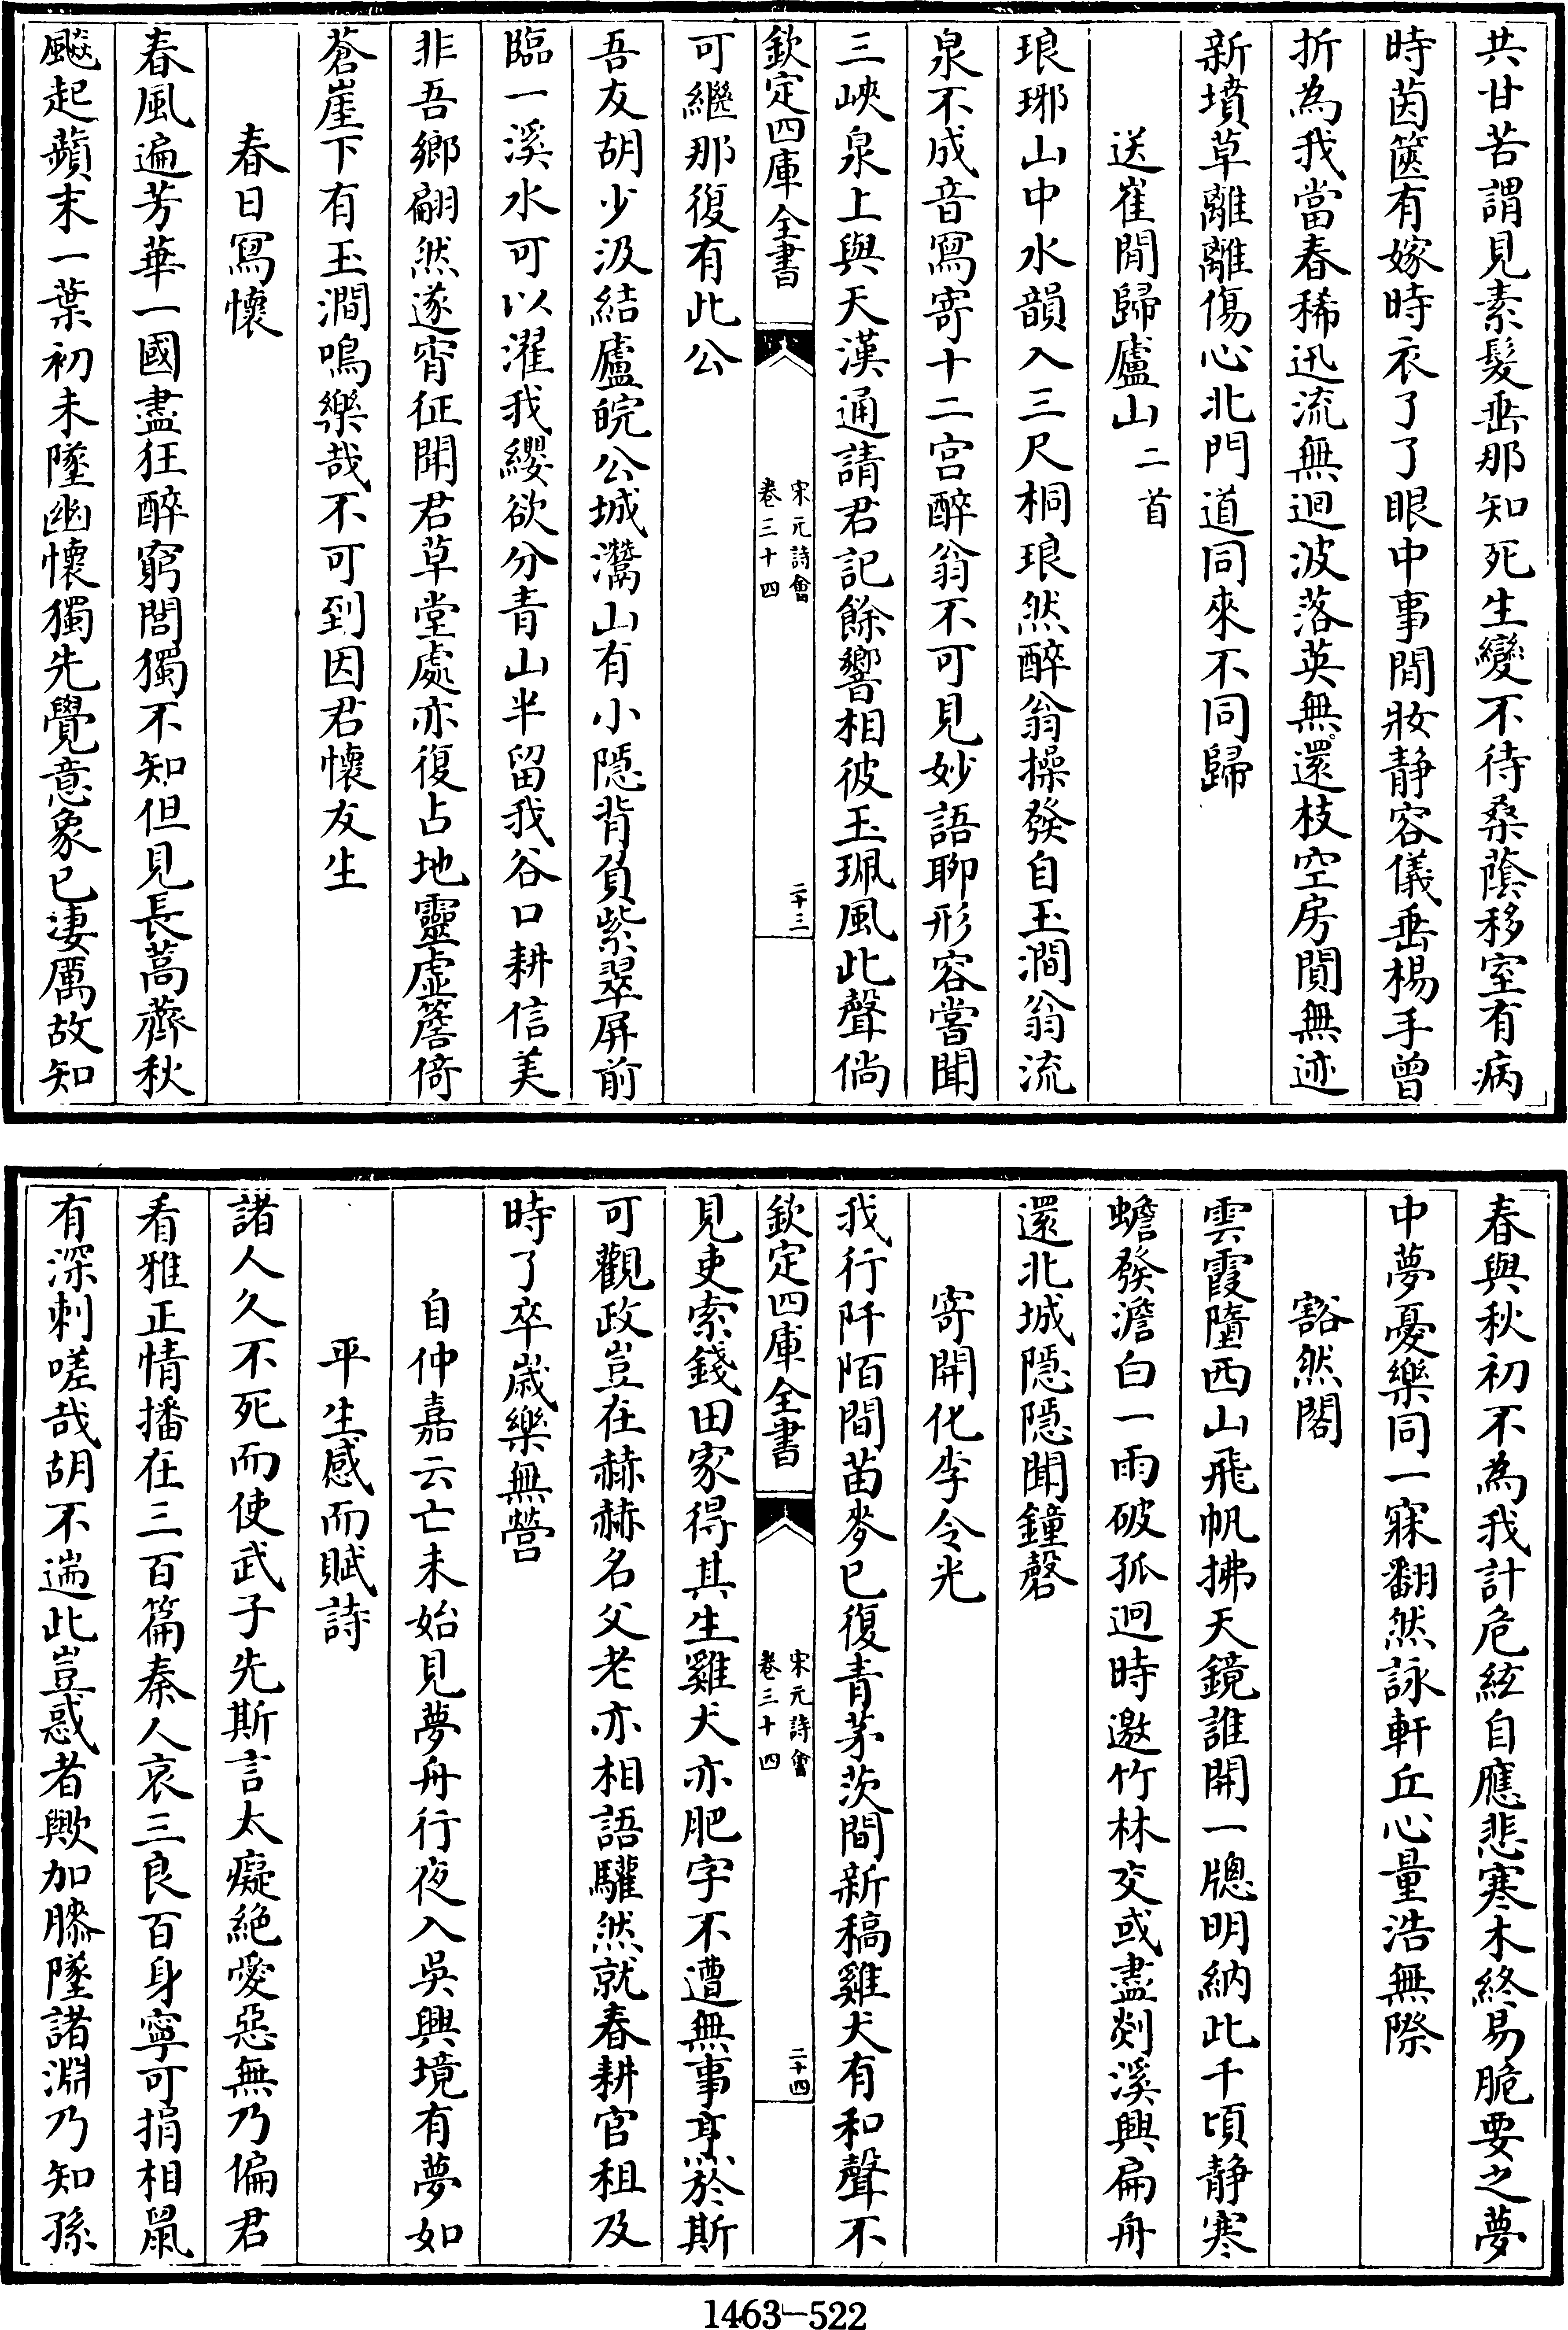 共甘苦謂見素髮垂那知死生變不待桑蔭移室有病
時茵篋有嫁時衣了了眼中事閒妝靜容儀垂楊手曾
折為我當春稀迅流無迴波落英無還枝空房閴無迹
新墳草離離傷心北門道同來不同歸
送崔閒歸廬山二首
琅琊山中水韻入三尺桐琅然醉翁操發自玉澗翁流
泉不成音寫寄十二宮醉翁不可見妙語聊形容嘗聞
三峽泉上與天漢通請君記餘響相彼玉珮風此聲倘
欽定四庫全書
宋元詩會
卷三十四
二十三
可繼那復有此公
吾友胡少汲結廬皖公城灊山有小隱背負紫翠屏前
臨一溪水可以濯我纓欲分青山半留我谷口耕信美
非吾鄉翩然遂宵征聞君草堂處亦復占地靈虛簷倚
蒼崖下有玉澗鳴樂哉不可到因君懷友生
春日寫懷
春風遍芳華一國盡狂醉窮閻獨不知但見長蒿薺秋
飈起蘋末一葉初未墜幽懷獨先覺意象已淒厲故知
春與秋初不為我計危絃自應悲寒木終易脆要之夢
中夢憂樂同一寐翻然詠軒丘心量浩無際
豁然閣
雲霞墮西山飛帆拂天鏡誰開一牎明納此千頃靜寒
蟾發澹白一雨破孤迥時邀竹林交或盡剡溪興扁舟
還北城隱隱聞鐘磬
寄開化李令光
我行阡陌間苗麥已復青茅茨間新稿雞犬有和聲不
欽定四庫全書
宋元詩會
卷三十四
二十四
見吏索錢田家得其生雞犬亦肥字不遭無事烹於斯
可觀政豈在赫赫名父老亦相語驩然就春耕官租及
時了卒歲樂無營
自仲嘉云亡未始見夢舟行夜入吳興境有夢如
平生感而賦詩
諸人久不死而使武子先斯言太癡絕愛惡無乃偏君
看雅正情播在三百篇秦人哀三良百身寧可捐相鼠
有深刺嗟哉胡不遄此豈惑者歟加膝墜諸淵乃知孫
1463-522